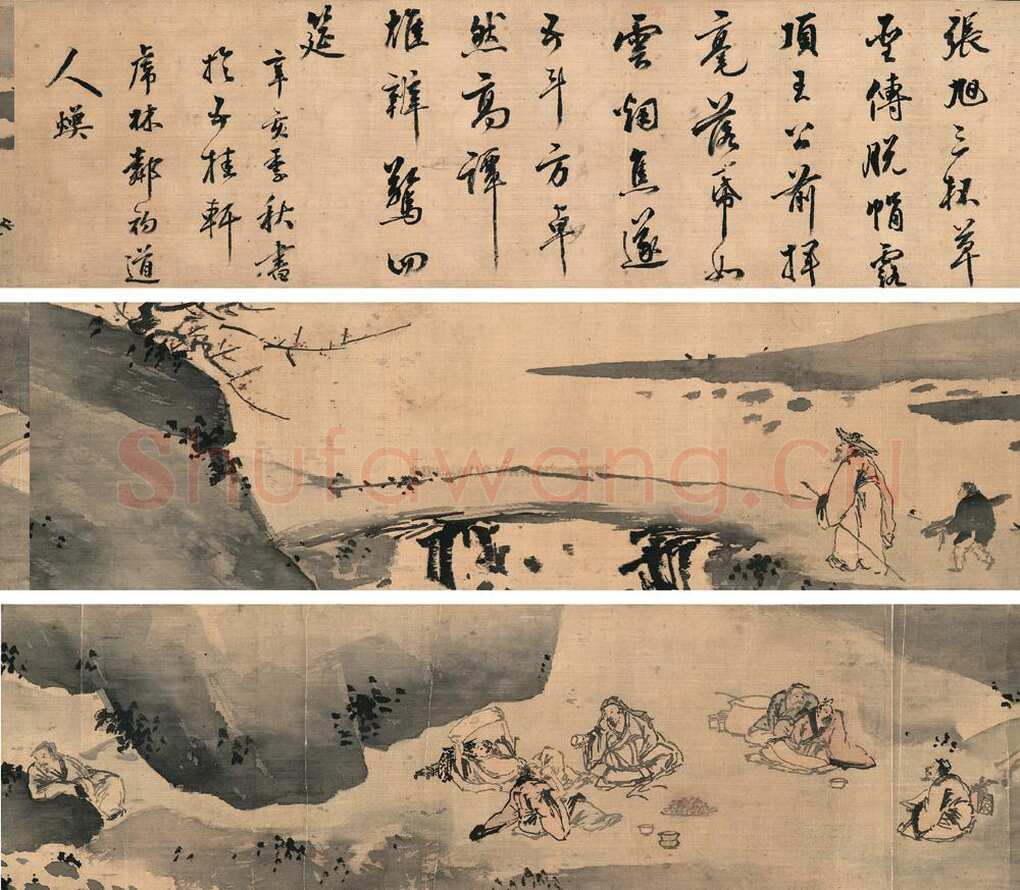 張旭三杯草
聖傳脫帽露
頂王公前揮
毫落帋如
雲烟焦遂
五斗方卓
然高譚
雄辨驚四
筵
辛亥季秋書
於五桂軒
虎林道
人
Shufawang.cn